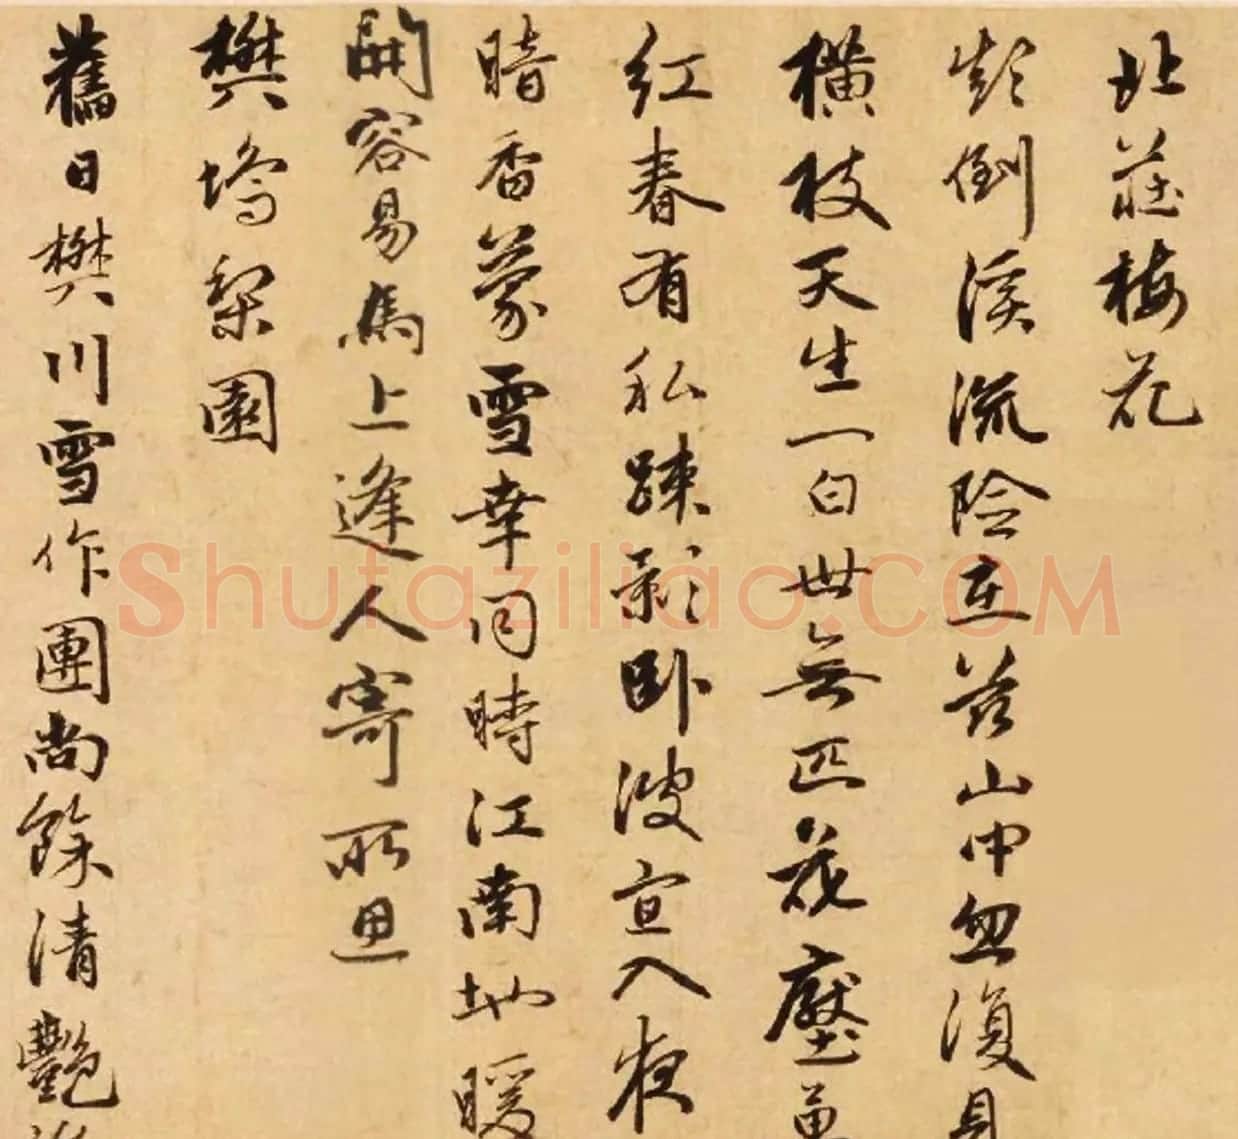 北莊梅花
倒溪流險在茲山中忽復見
橫枝天生一白世無匹花壓
紅春有私疎影臥波宜入夜
暗香蒙雪幸同時江南地暖
開容易馬上逢人寄所思
樊塢梨園
舊日樊川雪作團尚餘清艷
Shufaziliao.COM